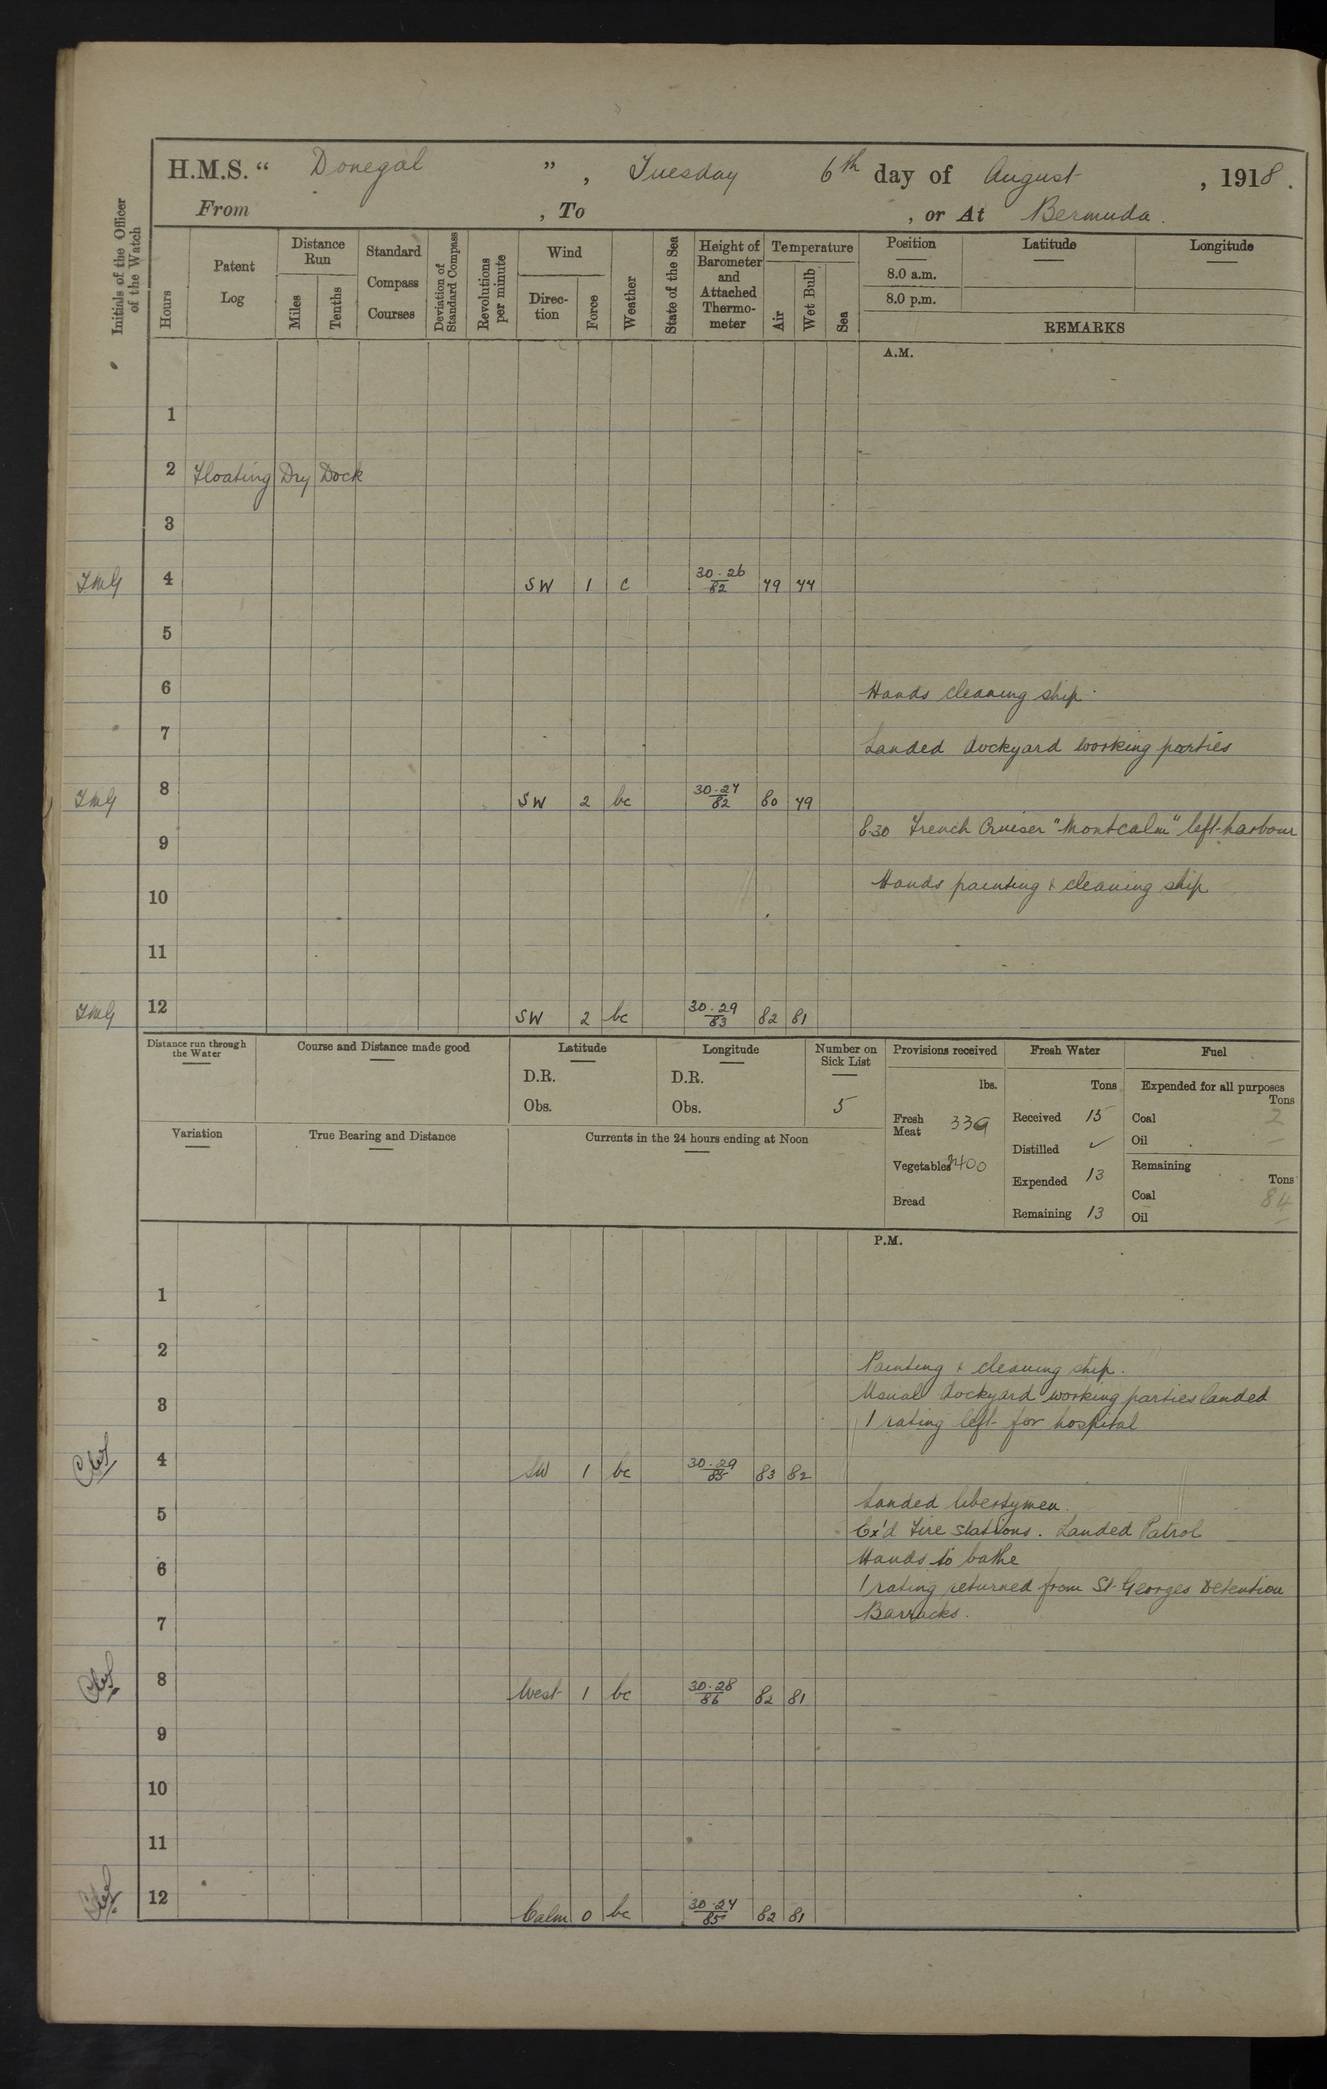 H.M.S. “ Donegal ” , Tuesday 6th day of August , 1918.
From , To , or At Bermuda.
Initials of the Officer of the Watch
Hours
Patent Log
Distance Run
Miles
Tenths
Standard Compass Courses
Deviation of Standard Compass
Revolutions per minute
Wind
Direc-tion
Force
Weather
State of the Sea
Height of Barometer and Attached Thermo-meter
Temperature
Air
Wet Bulb
Sea
Position Latitude Longitude
8.0 a.m.
8.0 p.m.
REMARKS
A.M.
1
2 Floating Dry Dock
3
4 SW 1 c 30.26 82 79 77
5
6 Hands cleaning ship.
7 Landed dockyard working parties
8 SW 2 bc 30.27 82 80 79
8.30 French Cruiser "Montcalm" left harbour
9
Hands painting & cleaning ship
10
11
12 SW 2 bc 30.29 83 82 81
Distance run through the Water
Course and Distance made good
Latitude
D.R.
Obs.
Longitude
D.R.
Obs.
Number on Sick List
5
Provisions received
lbs.
Fresh Meat 339
Vegetables 400
Bread
Fresh Water
Tons
Received 15
Distilled ✓
Expended 13
Remaining 13
Fuel
Expended for all purposes
Tons
Coal 2
Oil –
Remaining
Tons
Coal 84
Oil –
Variation
True Bearing and Distance
Currents in the 24 hours ending at Noon
P.M.
1
2
Painting & cleaning ship.
Usual dockyard working parties landed
3
1 rating left for hospital
4 SW 1 bc 30.29 85 83 82
Landed libertymen.
5
Ex'd Fire stations. Landed Patrol
Hands to bathe
6
1 rating returned from St. Georges Detention
Barracks.
7
8 West 1 bc 30.28 86 82 81
9
10
11
12 Calm 0 bc 30.27 85 82 81